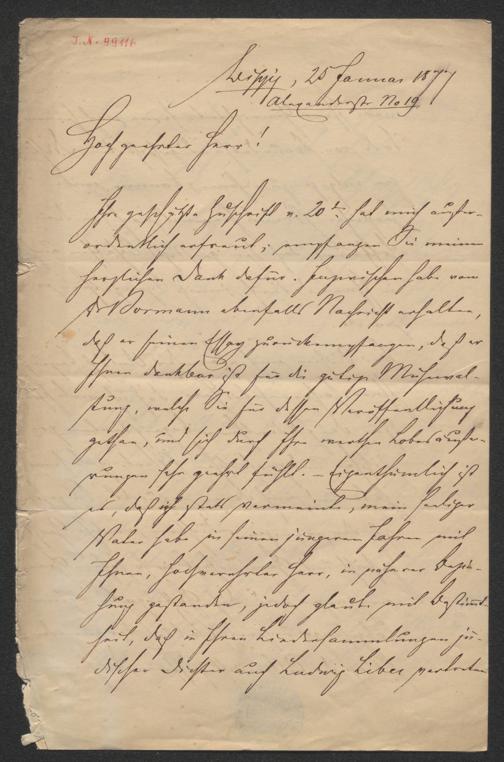 J. N. 99116
Leipzig, 25 Januar 1877
Alexanderstr No 19
Hochgeehrter Herr!
Ihre geschätzte Zuschrift v. 20t. hat mich außer-
ordentlich erfreut; empfangen Sie meinen
herzlichen Dank dafür. Inzwischen habe von
Dr Bormann ebenfalls Nachricht erhalten,
daß er seinen Essay zurückempfangen, daß er
Ihnen dankbar ist für die gütige Mühewal-
tung, welche Sie für dessen Veröffentlichung
gethan, und sich durch Ihre werthen Lobesäuße-
rungen sehr geehrt fühlt. – Eigenthümlich ist
es, daß ich stets vermeinte, mein seliger
Vater habe in seinen jüngeren Jahren mit
Ihnen, hochverehrter Herr, in näherer Bezie-
hung gestanden, jedoch glaube mit Bestimmt-
heit, daß in Ihren Liedersammlungen jü-
discher Dichter auch Ludwig Liber vertreten